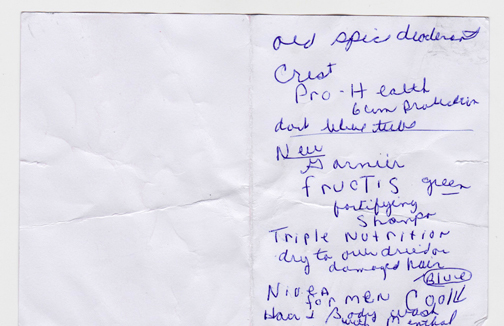 old spic deoderant
Crest
Pro-Health
Gum Protection
dark blue tube
New
Garnier
fructis green
fortifying
Shampo
Triple Nutrition
dry to over dried or
damaged hair
Blue
Nivea
for men Cool
Hair & Body wash
with Menthol